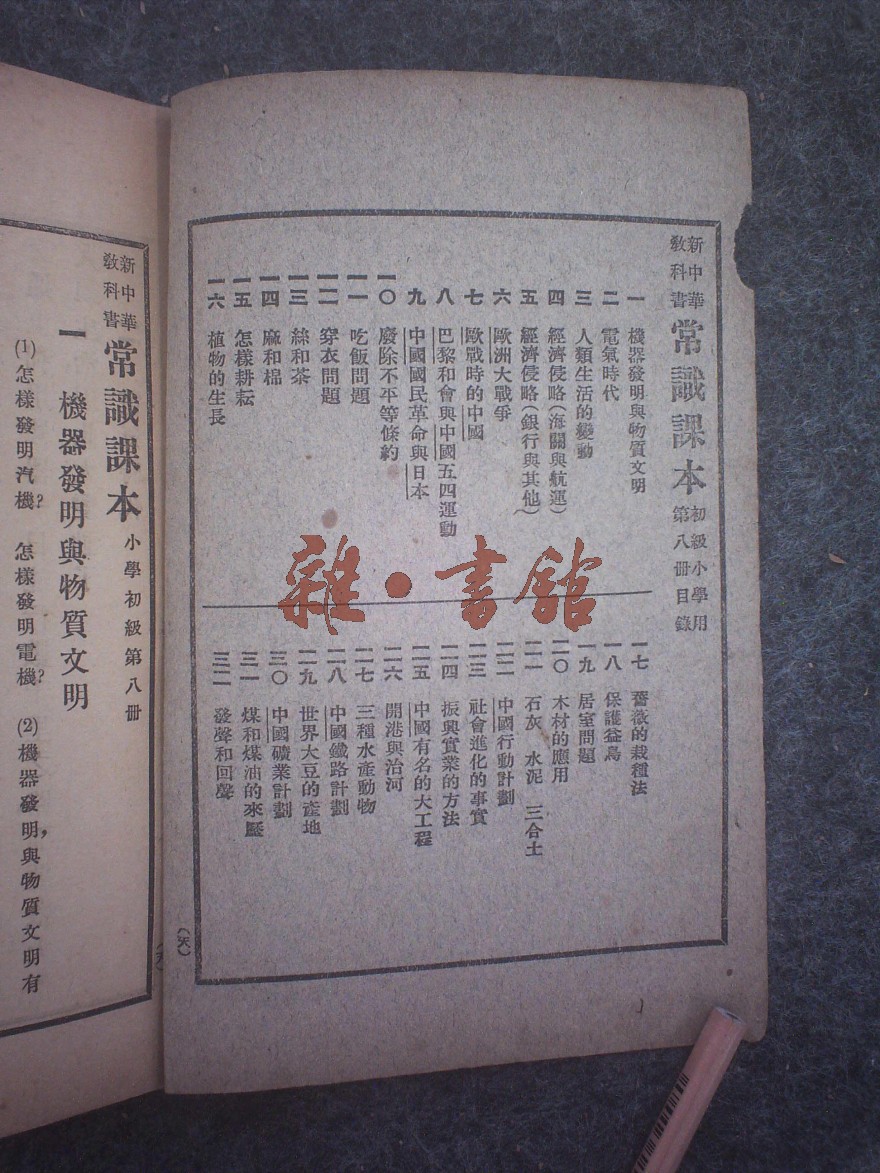 新中華教科書 常識課本 初級小學用 第八冊目錄
一 機器發明與物質文明
二 電氣時代
三 人類生活的變動
四 經濟侵略(海關與航運)
五 經濟侵略(銀行與其他)
六 歐洲大戰爭
七 歐戰時的中國
八 巴黎和會與中國五四運動
九 中國國民革命與日本
一〇 廢除不平等條約
一一 吃飯問題
一二 穿衣問題
一三 絲和茶
一四 麻和棉
一五 怎樣耕耘
一六 植物的生長
一七 薔薇的栽種法
一八 保護益鳥
一九 居室問題
二〇 木材的應用
二一 石灰 水泥 三合土
二二 中國行動計劃
二三 社會進化的事實
二四 振興實業的方法
二五 中國有名的大工程
二六 開港與治河
二七 三種水產動物
二八 中國鐵路計劃
二九 世界大豆的產地
三〇 中國礦業計劃
三一 煤和煤油的來歷
三二 發聲和回聲
雜·書館
新中華教科書 常識課本 小學初級第八冊
一 機器發明與物質文明
(1)怎樣發明汽機? 怎樣發明電機? (2)機器發明,與物質文明有